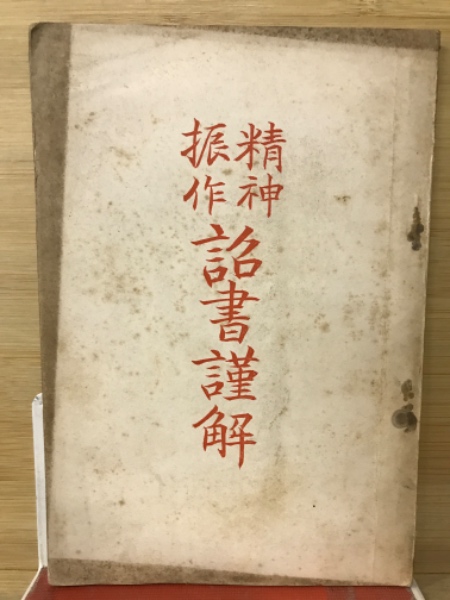 精神
振作
詔書謹解